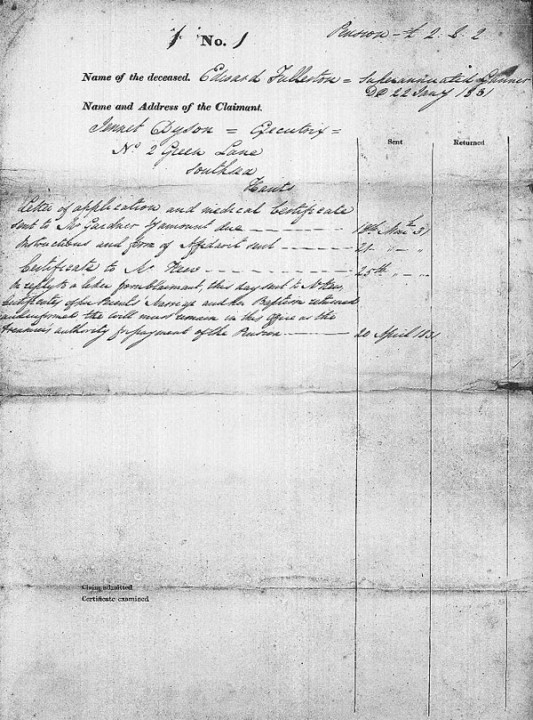 No. 1 Pension - £ 2. 2. 2
Name of the deceased. Edward Fullerton = Superannuated
DD 22 Jany 1831
Name and Address of the Claimant.
Jennet Dyson = Executrix =
No 2 Green Lane
Southsea
Hants
Sent Returned
Letter of application and medical Certificate
sent to Mr Gardner if amount due 18th 31
Instructions and form of Affidavit sent 21 " "
Certificate to Mr 25th " "
In reply to a letter from Claimant, this day sent to
Certificates of her Parents' Marriage and her Baptism returned
and informed the Will must remain in this Office as the
Treasurer's authority for payment of the Pension 20 April 1831
Claim admitted
Certificate examined